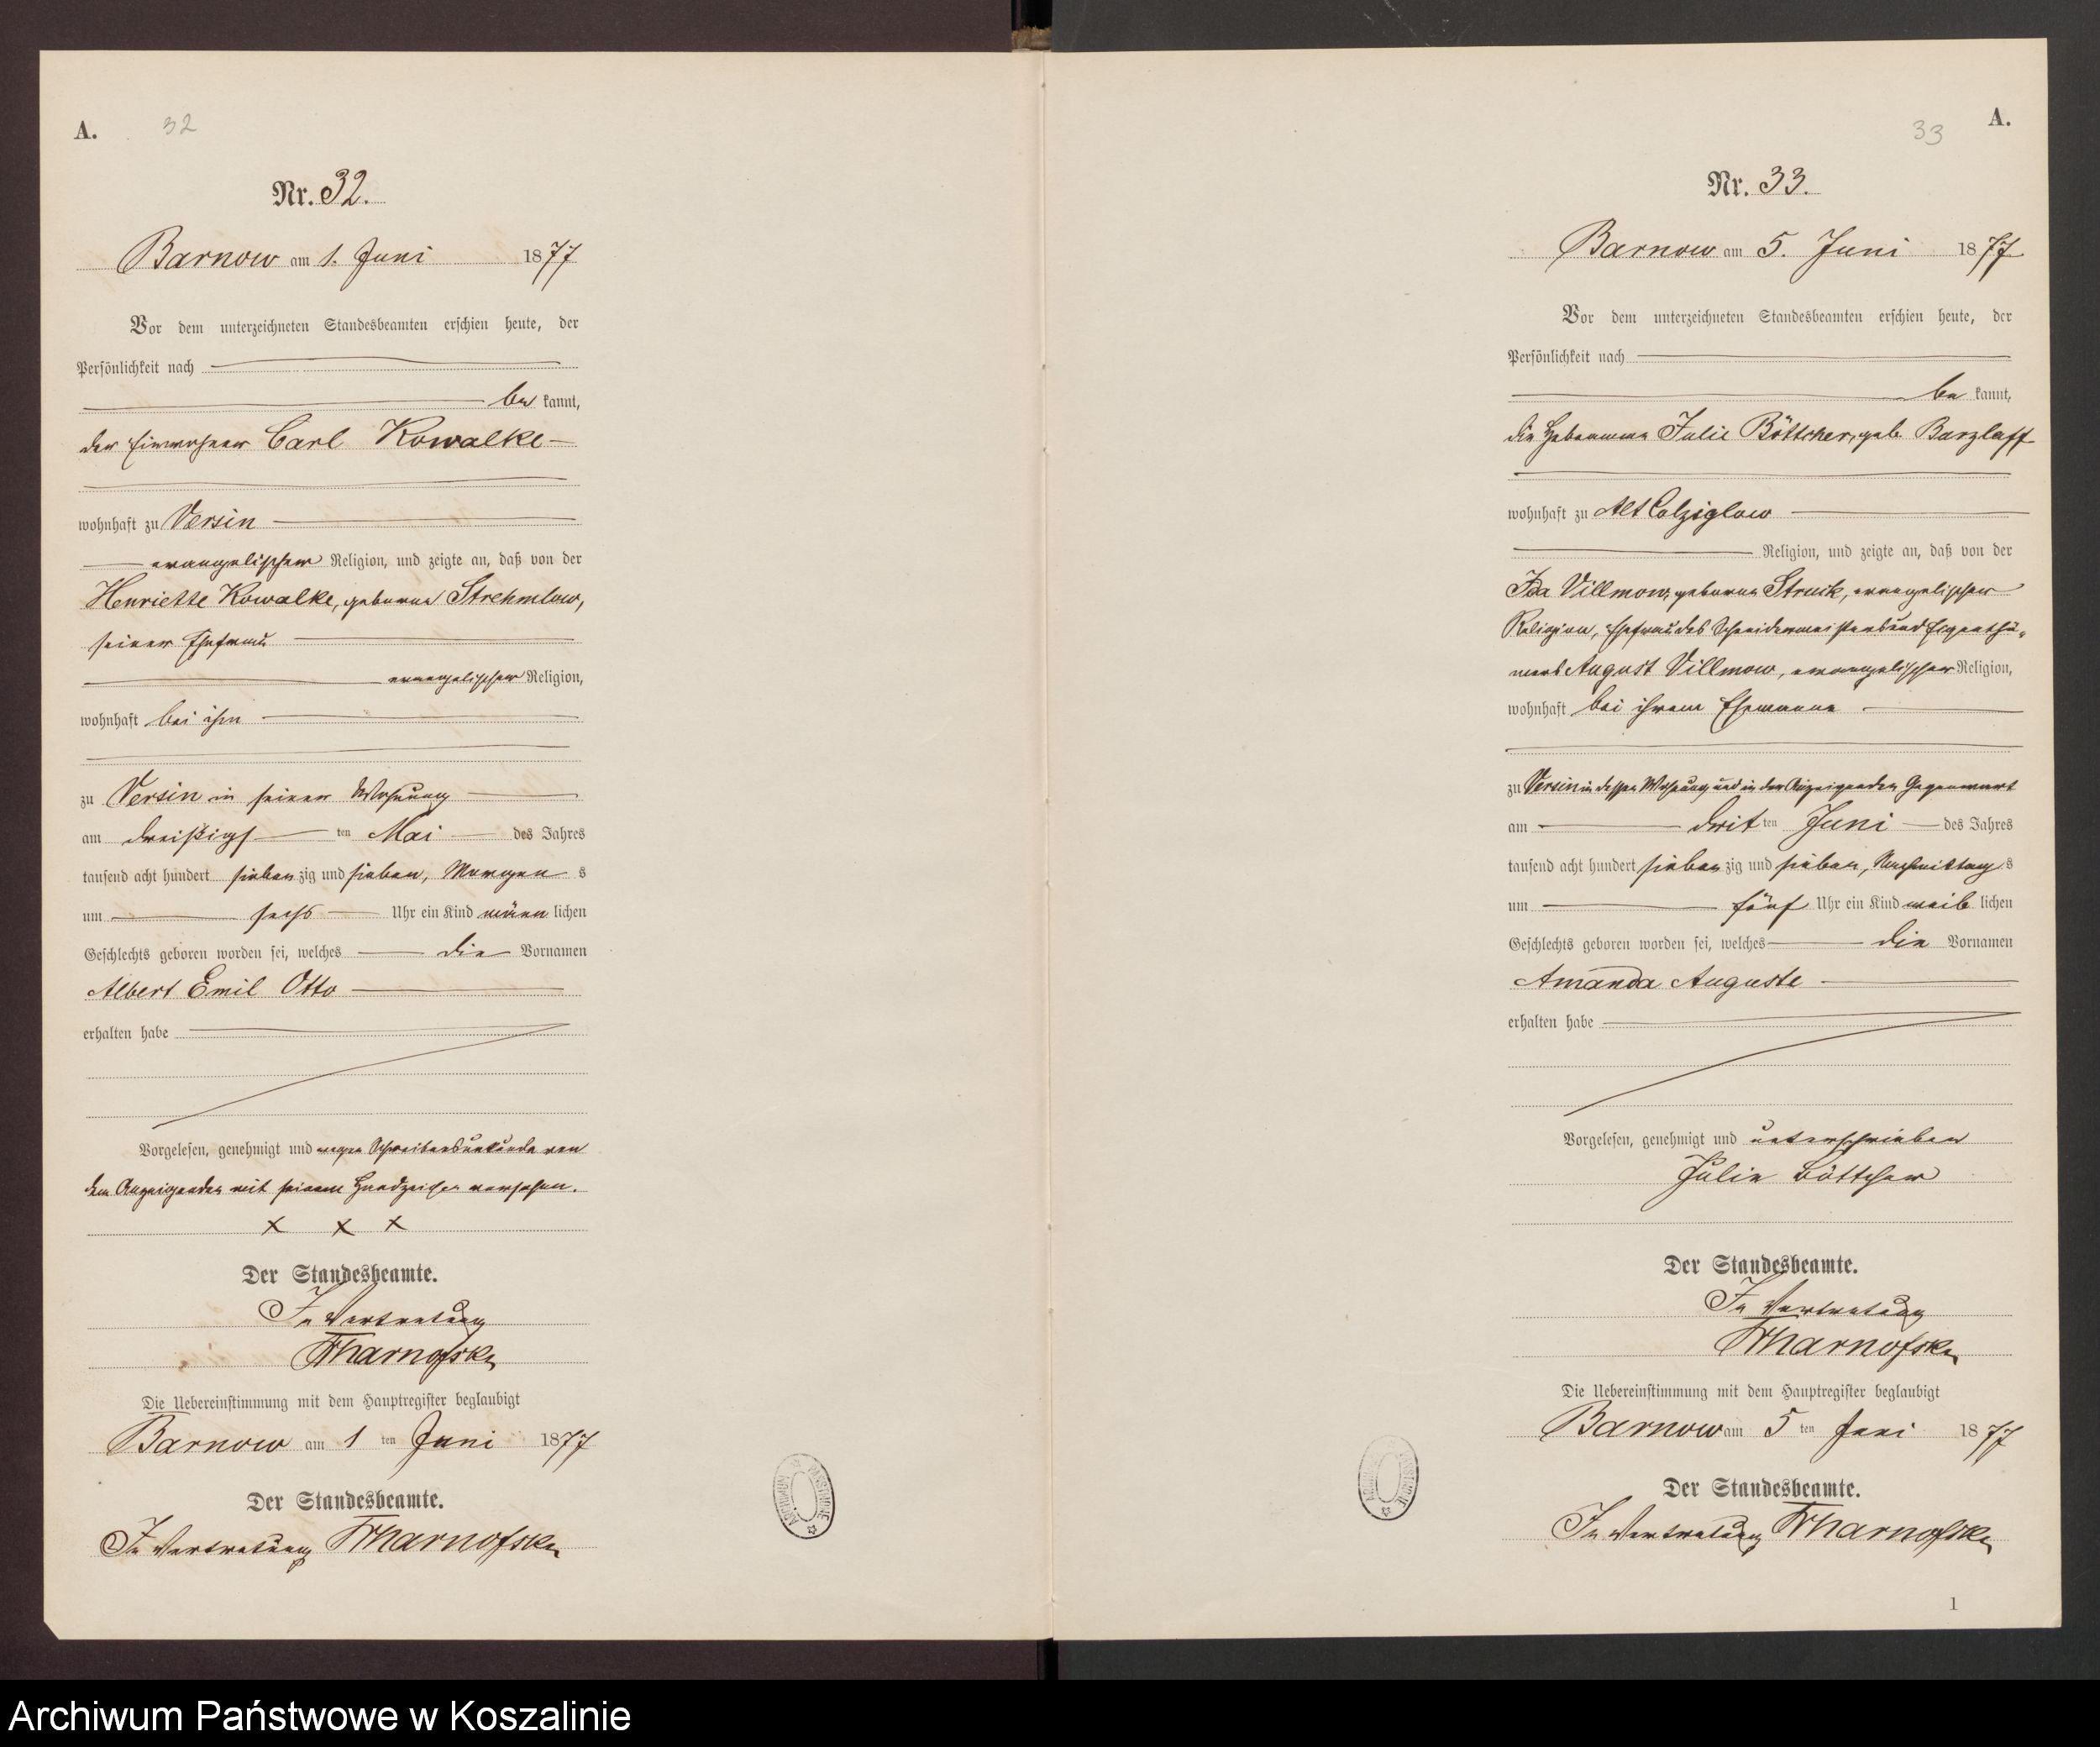 A.
32
Nr. 32.
Barnow am 1. Juni 1877
Vor dem unterzeichneten Standesbeamten erschien heute, der
Persönlichkeit nach
be kannt,
der Einwohner Carl Kowalke
wohnhaft zu Versin
evangelischer Religion, und zeigte an, daß von der
Henriette Kowalke, geborne Strehmlow,
seiner Ehefrau
evangelischer Religion,
wohnhaft bei ihm
zu Versin in seiner Wohnung
am dreißigs ten Mai des Jahres
tausend acht hundert sieben zig und sieben, Morgen s
um sechs Uhr ein Kind männ lichen
Geschlechts geboren worden sei, welches die Vornamen
Albert Emil Otto
erhalten habe
Vorgelesen, genehmigt und wegen Schreibensunkunde von
dem Anzeigenden mit seinem Handzeichen versehen.
x x x
Der Standesbeamte.
In Vertretung
Die Uebereinstimmung mit dem Hauptregister beglaubigt
Barnow am 1 ten Juni 1877
Der Standesbeamte.
In Vertretung
A.
33
Nr. 33.
Barnow am 5. Juni 1877
Vor dem unterzeichneten Standesbeamten erschien heute, der
Persönlichkeit nach
be kannt,
die Hebamme Julie Böttcher, geb. Barzlaff
wohnhaft zu Alt Colziglow
Religion, und zeigte an, daß von der
Ida Villmow, geborne Struck, evangelischer
Religion, Ehefrau des Schneidermeisters und Eigenthü-
mers August Villmow, evangelischer Religion,
wohnhaft bei ihrem Ehemanne
zu Versin in dessen Wohnung und in der Anzeigenden Gegenwart
am drit ten Juni des Jahres
tausend acht hundert sieben zig und sieben, Nachmittag s
um fünf Uhr ein Kind weib lichen
Geschlechts geboren worden sei, welches die Vornamen
Amanda Auguste
erhalten habe
Vorgelesen, genehmigt und unterschrieben
Julie Böttcher
Der Standesbeamte.
In Vertretung
Die Uebereinstimmung mit dem Hauptregister beglaubigt
Barnow am 5 ten Juni 1877
Der Standesbeamte.
In Vertretung
1
Archiwum Państwowe w Koszalinie